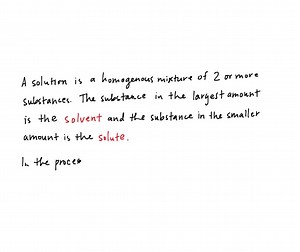 A solution is a homogenous mixture of 2 or more
substances. The substance in the largest amount
is the solvent and the substance in the smaller
amount is the solute.
In the proces